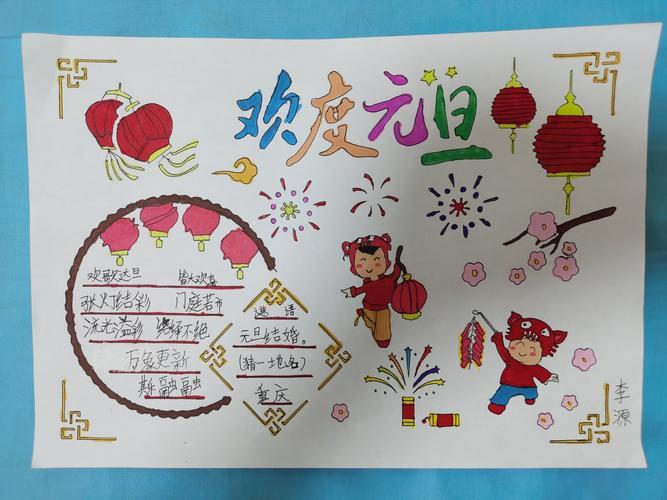 欢度元旦
欢歌达旦 皆大欢喜
张灯结彩 门庭若市
流光溢彩 络绎不绝
万象更新
融融
谜语
元旦结婚。
(猜一地名)
重庆
李源